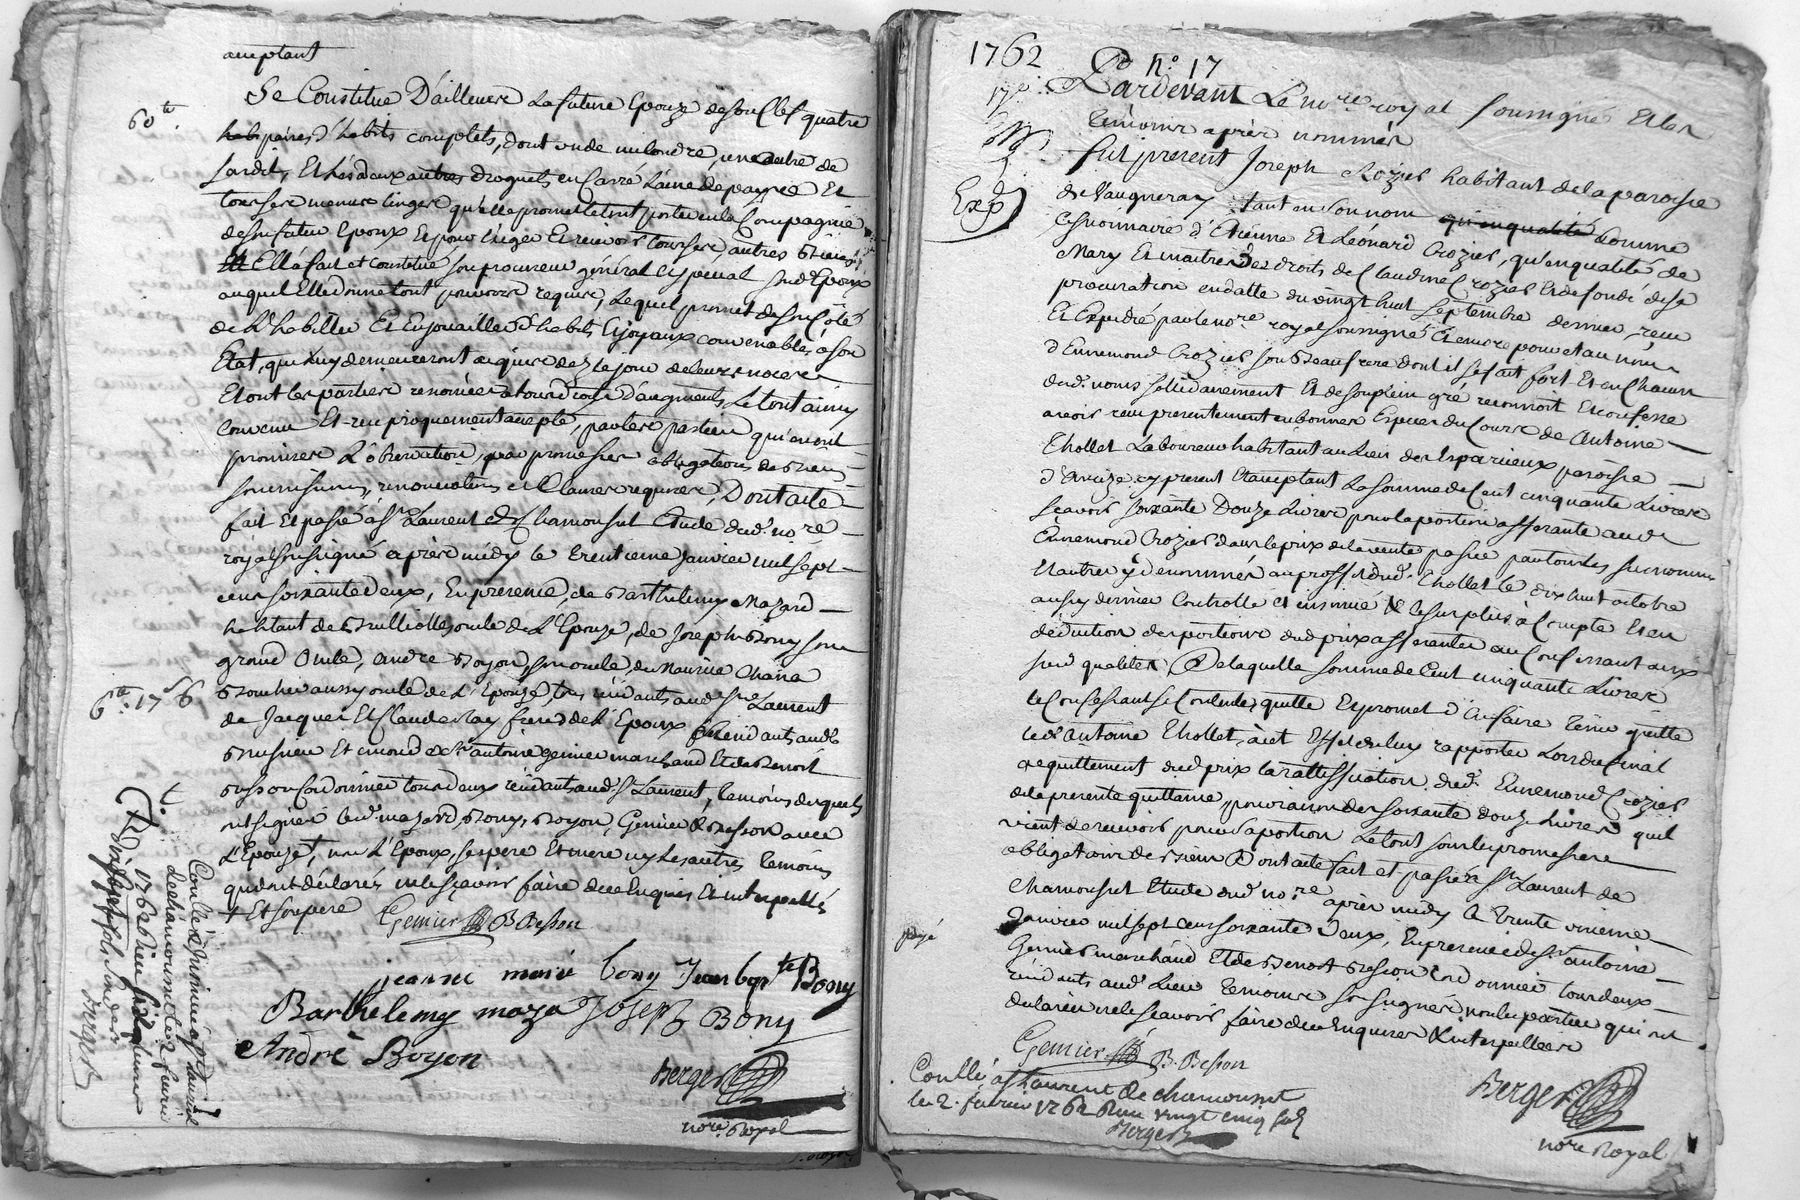 acceptant
Se Constitue D'ailleurs La future Epouze de son Chef quatre
60te
habi paires d'habits complets, dont un de un londre, une autre de
Sardis, Et les deux autres droguets en Carré Laine de payre Et
tous ses menus linges qu'elle promet porter en la Compagnie
de son futur Epoux Et pour Exiger Et recevoir tous ses autres Biens
Et Ell a fait et constitué son procureur général Espécial sud Epoux
auquel Elle donne tout pouvoirs requis, Lequel promet de son Côté
de L'habiller Et Enjouailler d'habits Et joyaux convenables à son
Etat, qui luy demeureront acquis dez le jour de leurs noces
Et ont les parties renoncé à tous droits d'augments, Le tout ainsy
Convenu Et reciproquement accepté, par les parties qui en ont
promises L'observation, par promesses obligations de Biens
Soumissions, renonciations et Clauses requises, Dont acte
fait Et passé à St Laurent de Chamousset Etude dud. no.re
royal soussigné après midy le trentieme janvier mil sept
cens soixante deux, En presence, de Barthelemy Mazard
habitant de Brullioles oncle de L'Epouze, de Joseph Bony son
grand oncle, andré Boyon, son oncle du Maurice Chana
Boucher aussy oncle de L'Epouze, tous residants aud. St Laurent
6te. 17s 6
de Jacques Et Claude May freres de L'Epoux residants aud.
Brussieu Et encore de Sr antoine Genier marchand Et de Benoit
Besson Cordonnier tous deux residants aud. St Laurent, temoins desquels
ont signés led. mazard, Bony, Boyon, Genier & Besson avec
L'Epouze +, non L'Epoux, ses pere Et mere ny les autres temoins
qui ont déclarés ne le sçavoir faire de ce Enquis Et interpellés
+ Et son pere
Genier B Besson
jeanne marie bony Jean bapte Bony
Barthelemy mazar Joseph Bony
André Boyon
Berger
nore Royal
Conllé & insinué a St Laurent
de chamousset le 2 fevrier
1762
Berger
1762
Po No. 17
Pardevant Le no.re royal Soussigné Et les
temoins après nommés
fut present Joseph Crozier habitant de la paroisse
Exp
de Vaugneray tant en son nom qu'en qualité comme
Cessionnaire d'Etienne Et Léonard Crozier, qu'en qualité de
Mary Et maitre des droits de Claudine Crozier Et de fondé de sa
procuration en datte du vingt huit Septembre dernier, reçu
Et Expedié par le no.re royal soussigné Et encore pour et au nom
d'Ennemond Crozier son Beaufrere dont il se fait fort Et en Chacun
desd. noms sollidairement Et de son plein gré reconnoit Et confesse
avoir reçu presentement en bonnes Especes du Cours de Antoine
Thollet Laboureur habitant au Lieu des Esparcieux paroisse
d'Aveize cy present Et acceptant La somme de Cent cinquante Livres
Scavoir soixante Douze Livres pour la portion afferante aud.
Ennemond Crozier dans le prix de la vente passée par tous les surnommés
Et autres y denommés au proffit dud. Thollet le dix huit octobre
aussy dernier Controllé et insinué & le surplus à Compte Et en
déduction des portions dud prix afferantes au Confessant aux
susd qualités, De laquelle somme de Cent cinquante Livres
le Confessant se Contente, quitte Et promet d'En faire tenir quitte
led. Antoine Thollet, à cet Effet de luy rapporter Lors du final
acquittement dud prix la rattiffication dud. Ennemond Crozier
de la presente quittance, pour raison des soixante douze Livres qu'il
vient de recevoir pour sa portion Le tout sous les promesses
obligations de Biens Dont acte fait et passé à St Laurent de
Chamousset Etude dud no.re après midy le trente unieme
payé
Janvier mil sept cens soixante Deux, En presence de Sr antoine
Genier marchand Et de Benoit Besson Cordonnier tous deux
residants aud. Lieu temoins soussignés non les parties qui ont
declarés ne le sçavoir faire de ce Enquises & interpellées
Genier B. Besson
Conllé à St Laurent de chamousset
le 2. fevrier 1762 Reçu vingt cinq sols
Berger
Berger
nore Royal